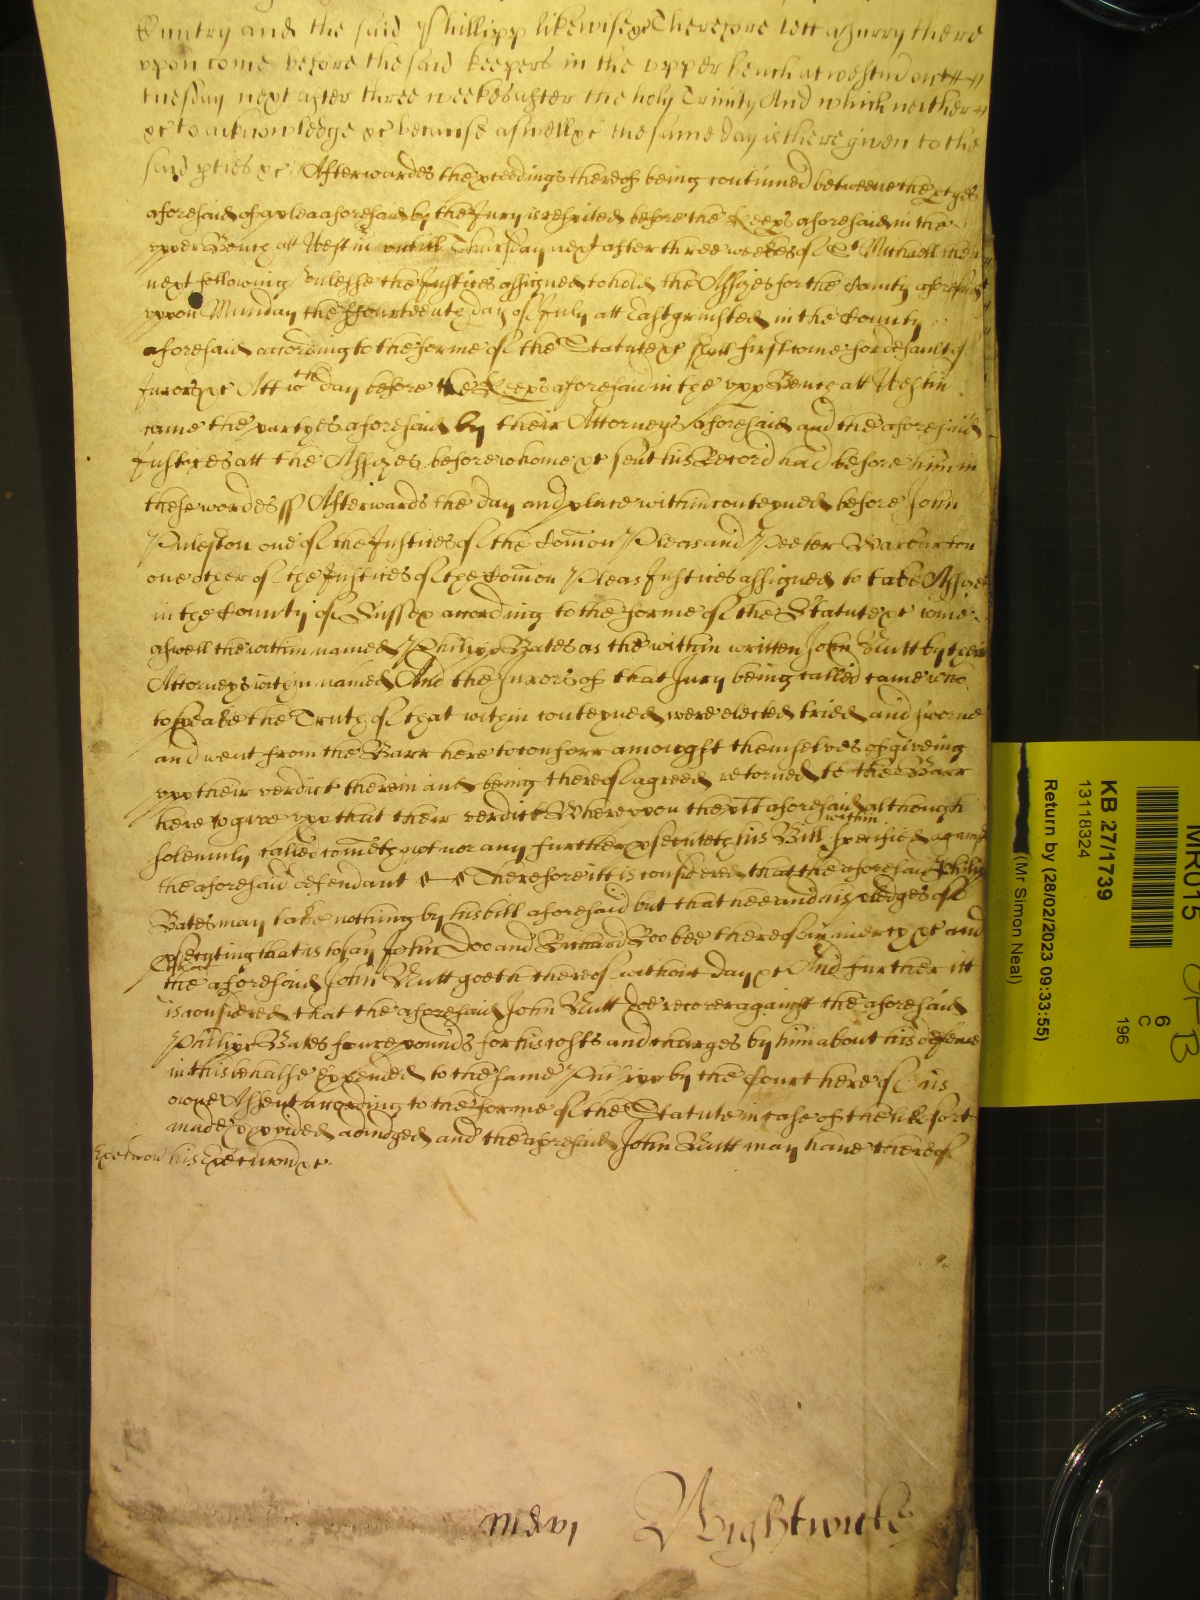 Cuntry and the said Phillipp likewise &c Therefore lett a Jurry there
upon come before the said keepers in the upper bench at westm̄ on
tuesday next after three weekes after the holy Trinity And which neither
&c to acknowledge &c because aswell &c the same day is there given to the
said p̱ties &c Afterwardes the p̱ceedings thereof being continued betweene the ptyes
aforesaid of a plea aforesaid by the Jury is respited before the Keeps aforesaid in the
upper Bench att Westm̄ untill Thursday next after three weekes of St Michaell the
next following unlesse the Justices assigned to hold the Assizes for the County aforesaid
uppon Munday the ffourteenth day of July att Eastgrinsted in the County
aforesaid according to the forme of the Statute &c shall first come for default of
Jurors &c Att wch day before the Keeps aforesaid in the upp Bench att Westm̄
came the partyes aforesaid by their Attorneys aforesaid and the aforesaid
Justices att the Assizes before whome &c sent his Record had before him in
these wordes ss Afterwards the day and place within conteyned before John
Puleston one of the Justices of the Com̄on Pleas and Peeter Warburton
one other of the Justices of the Com̄on Pleas Justices assigned to take Assizes
in the County of Sussex according to the forme of the Statute &c come
aswell the within named Philipp Bates as the within written John Nutt by their
Attorneys within named And the Jurors of that Jury being called came who
to speake the Truth of that within conteyned were elected tried and sworne
and went from the Barr here to conferr amongst themselves of giveing
upp their verdict therein and being thereof agreed retorned to the Barr
here to give upp that their verdict Whereupon the plt aforesaid although
solemnly called cometh not nor any further p̱secuteth his Bill within specified against
the aforesaid defendant Therefore it is considered that the aforesaid Philip
Bates may take nothing by his bill aforesaid but that hee and his pledges of
p̱secuting that is to say John Doo and Richard Roo bee thereof in mercy &c and
that
the aforesaid John Nutt goeth thereof without day &c And further itt
is considered that the aforesaid John Nutt doe recover against the aforesaid
Philipp Bates foure pounds for his costs and charges by him about his defence
in this behalfe expended to the same by the Court here of his
owne Assent according to the forme of the Statute in case of the like sort
made & p̱vided adiudged and the aforesaid John Nutt may have thereof
Execucon his Execucon &c
Mdvi Wightwicke
MR015
KB 27/1739
13118324
Return by (28/02/2023 09:33:55)
(Mr Simon Neal)
6
C
196